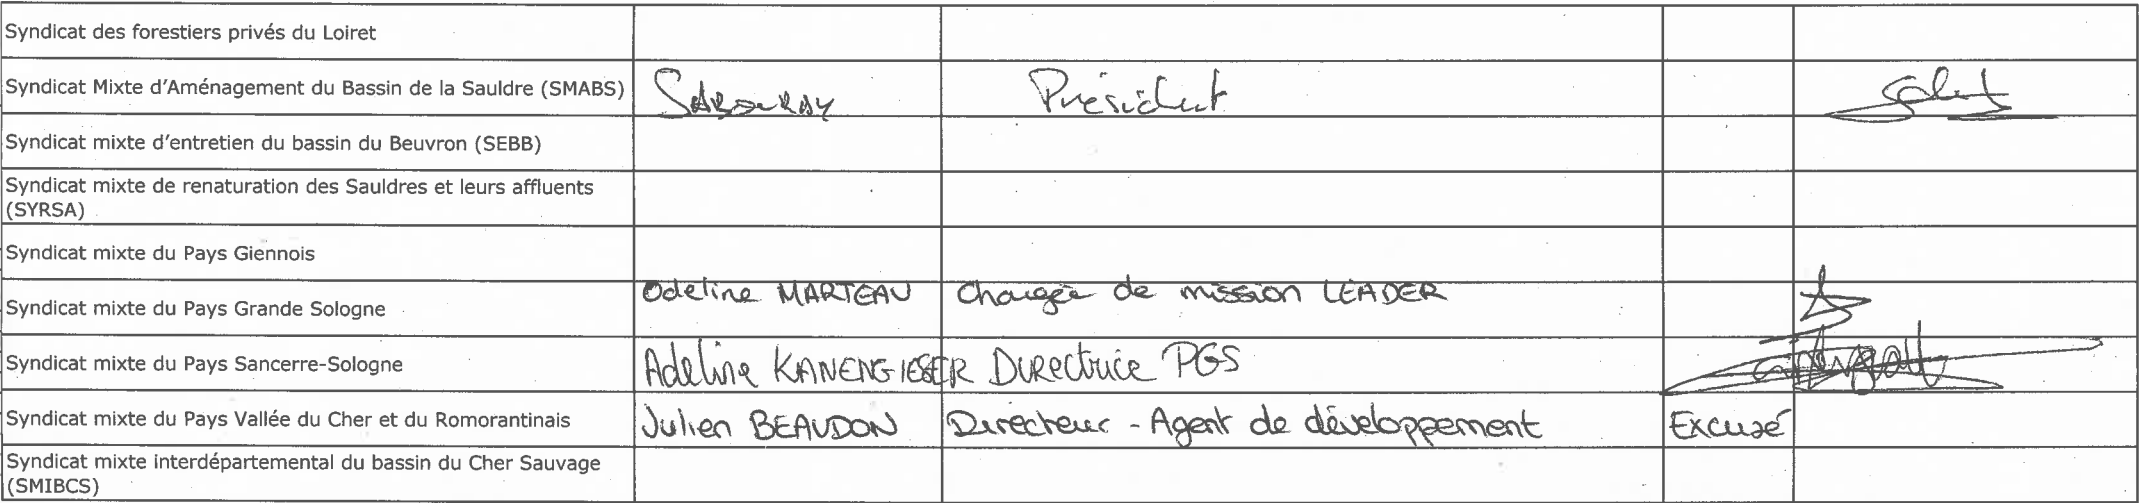 Syndicat des forestiers privés du Loiret
Syndicat Mixte d'Aménagement du Bassin de la Sauldre (SMABS) Président
Syndicat mixte d'entretien du bassin du Beuvron (SEBB)
Syndicat mixte de renaturation des Sauldres et leurs affluents
(SYRSA)
Syndicat mixte du Pays Giennois
Syndicat mixte du Pays Grande Sologne Odeline MARTEAU Chargée de mission LEADER
Syndicat mixte du Pays Sancerre-Sologne Adeline KANENGIESER Directrice PGS
Syndicat mixte du Pays Vallée du Cher et du Romorantinais Julien BEAUDON Directeur - Agent de développement Excusé
Syndicat mixte interdépartemental du bassin du Cher Sauvage
(SMIBCS)